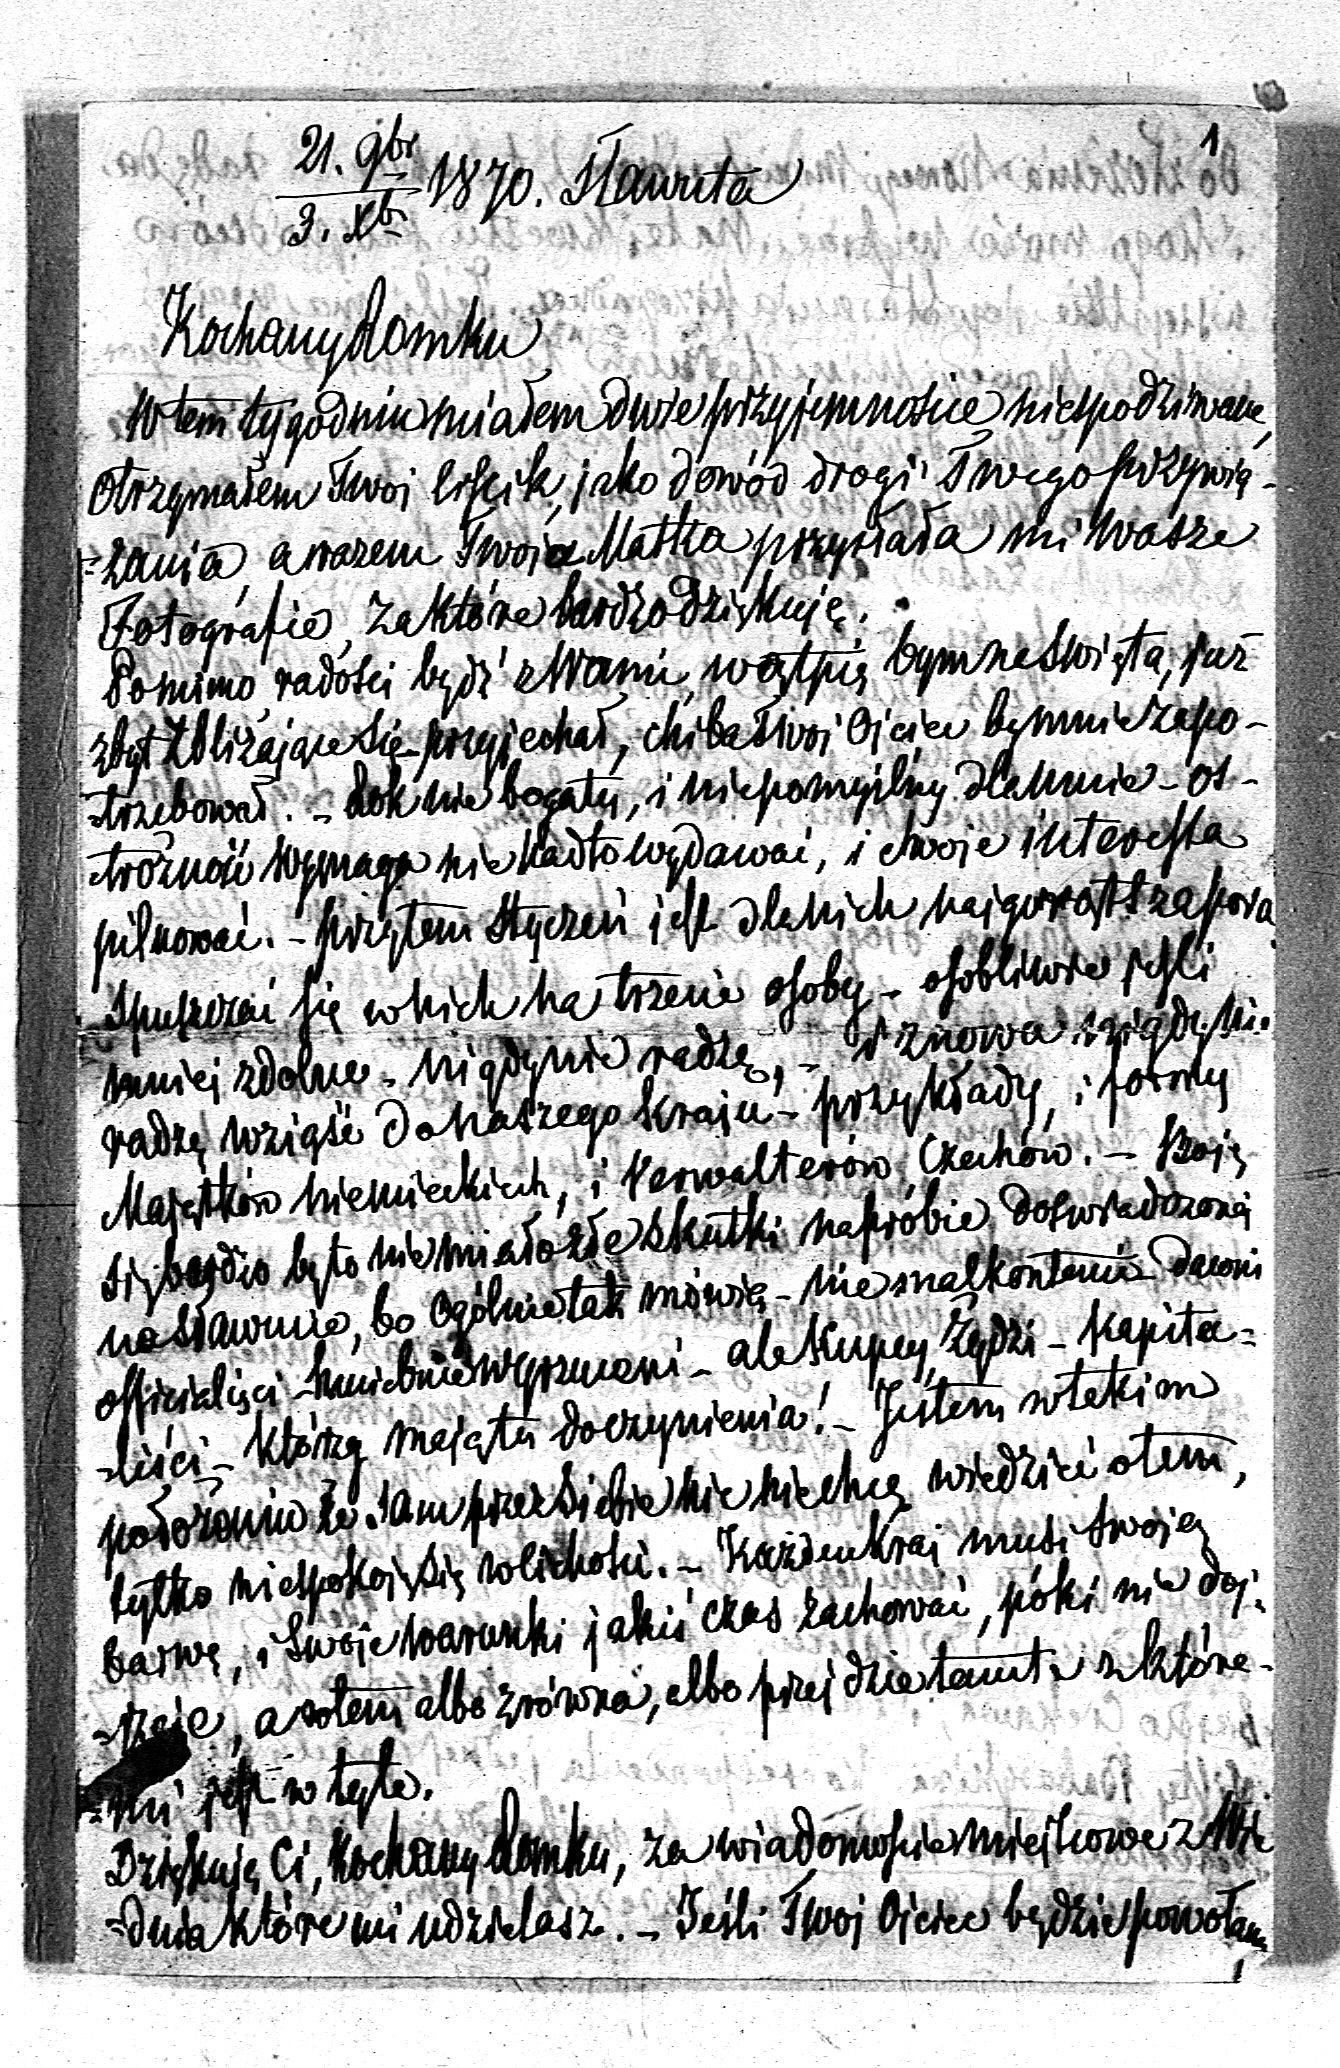 1
21. 9br
3. Xbr 1870. Sławuta
Kochany Romku
W tem tygodniu miałem dwie przyjemnoście niespodziwane,
Otrzymałem Twoi liścik, jako dowód drogi Twego przywią-
-zania, a razem Twoja Matka przysłała mi wasze
Fotografie, za które bardzo dziękuję.
Pomimo radości bydź z Wami, wątpię bym na Święta, już
zbyt zbliżające się przyjechał, chiba Twoi Ojciec by mnie zapo-
-trzebował. – Rok nie bogaty, i niepomyślny dla mnie – os-
trożność wymaga nie nadto wydawać, i swoje interessa
pilnować. – przytem Styczeń jest dla nich najgorętsza pora
Spuszczać się w nich na trzecie osoby – osobliwie jeśli
mniej zdolne – nigdy nie radzę, – i znowu nigdy ni-
radzę wziąść do naszego Kraju – przykłady, i formy
Majątków niemieckich, i Verwalterów Czechów. – Boję
się bardzo by to nie miało złe skutki na próbie doświadczonej
na Sławucie, bo ogólnie tak mówią – nie malkontenci dawni
officialiści – ale Kupcy, Żydzi – Kapita-
-liści – którzy mają tu doczynienia! – Jestem w takim
położeniu że sam przez siebie nic nie chcę wiedzieć o tem,
tylko niespokoję się w cichości. – Każden Kraj musi swoję
barwę, i swoje warunki jakiś czas zachować, póki nie doj-
-rzeje, a potem albo zrówna, albo przejdzie tamte z które-
-mi jest w tyle.
Dziękuję Ci, Kochany Romku, za wiadomoście miejscowe z Wie
-dnia które mi udzielasz. – Jeśli Twoj Ojciec będzie powołany